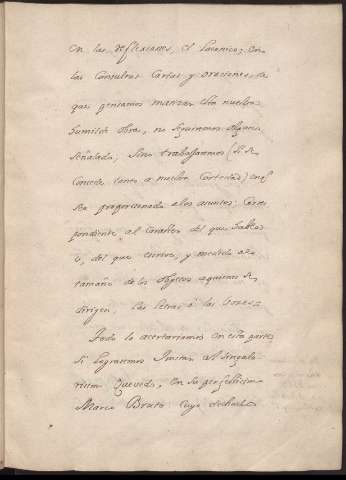 en las reflexiones, el Laconico; en
las Consultas Cartas y Oraciones, a
que pensamos mezclar en nuestra
humilde obra, no seguiremos alguno
señalado; Sino trabajaremos (si se
Concede tanto a nuestra Cortedad) en el
sea proporcionado a los asuntos; Corres
pondiente al Caracter del que habla
ò, del que escrive, y medido al
tamaño de los Objetos a quienes se
dirigen, las letras ò las Voces.
Todo lo acertariamos en esta parte
Si lograsemos Imitar al Singula
rissimo Quevedo, en Su
Marco Bruto cuyo